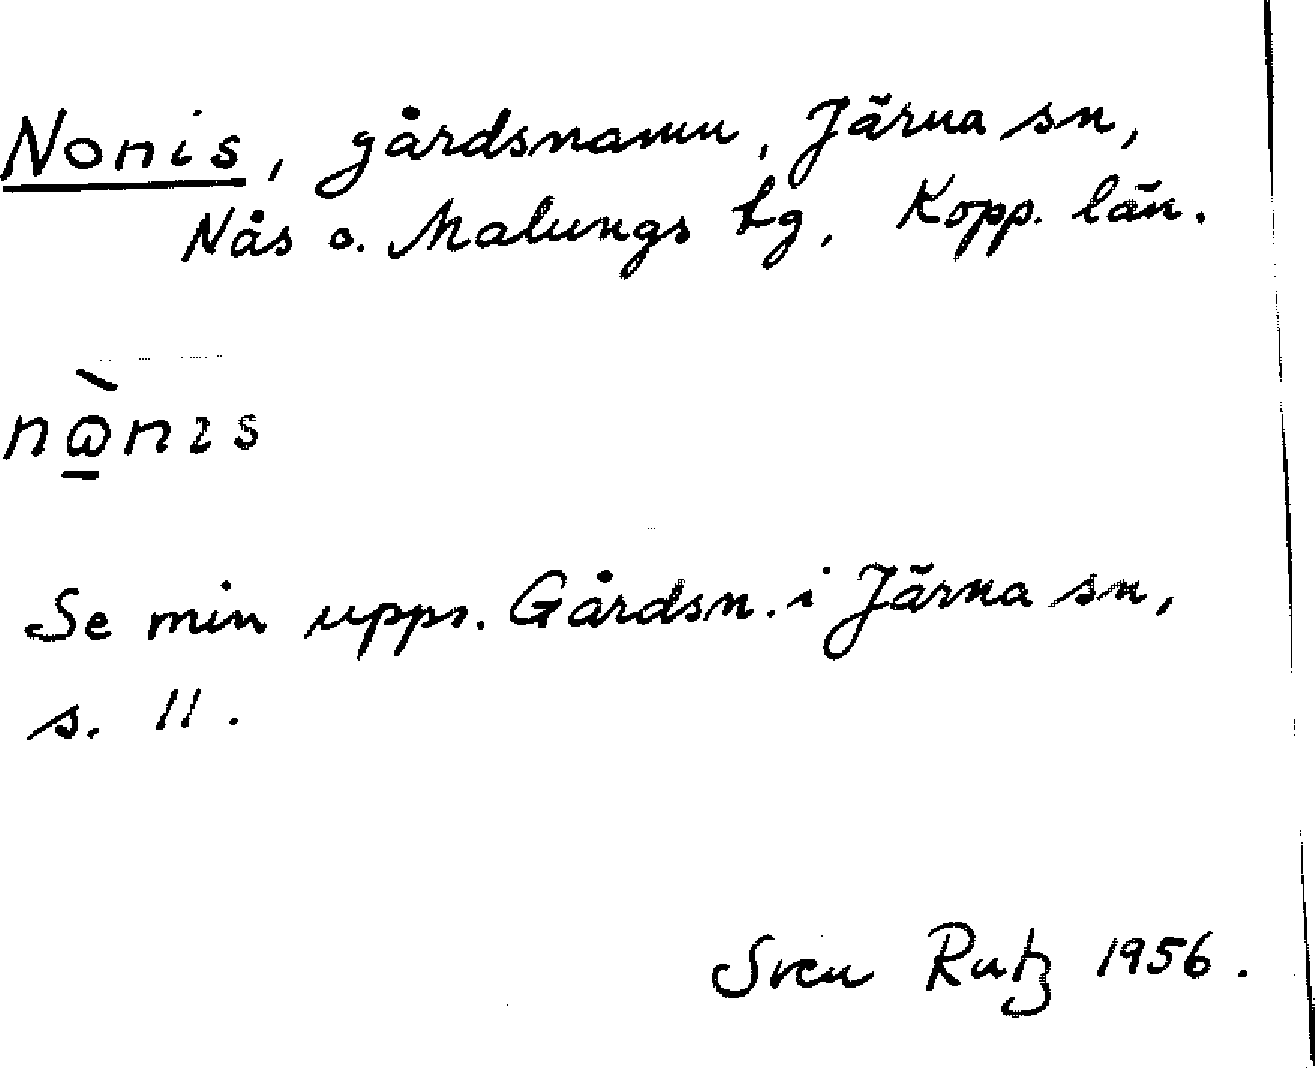 Nonis, gårdsnamn, Järna sn,
Nås o. Malungs tg, Kopp. län.
nὼ̱nıs
Se min upps. Gårdsn. i Järna sn,
s. 11.
Sven Rutz 1956.